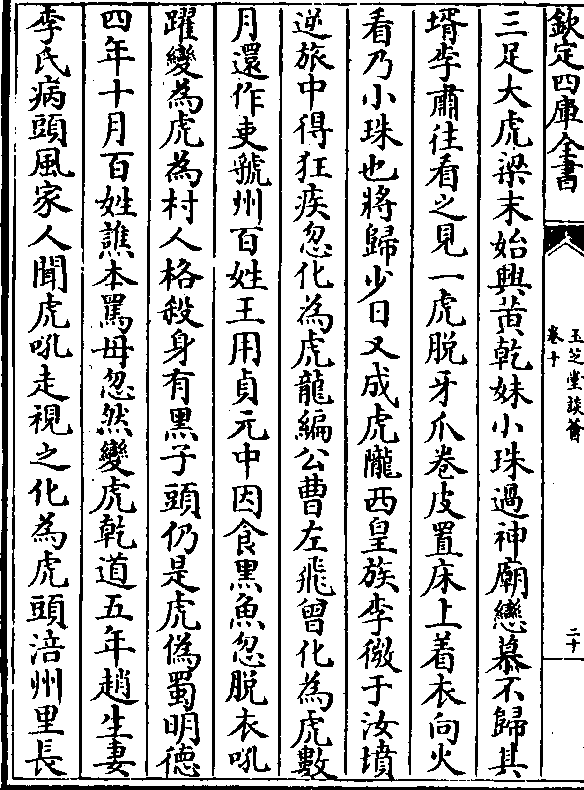 欽定四庫全書
玉芝堂談薈
卷十
二十
三足大虎梁末始興黃乾妹小珠過神廟戀慕不歸其
壻李肅往看之見一虎脫牙爪卷皮置床上着衣向火
看乃小珠也將歸少日又成虎隴西皇族李徵于汝墳
逆旅中得狂疾忽化為虎龍編公曹左飛曾化為虎數
月還作吏虢州百姓王用貞元中因食黑魚忽脫衣吼
躍變為虎為村人格殺身有黑子頭仍是虎偽蜀明德
四年十月百姓譙本罵母忽然變虎乾道五年趙生妻
李氏病頭風家人聞虎吼走視之化為虎頭涪州里長